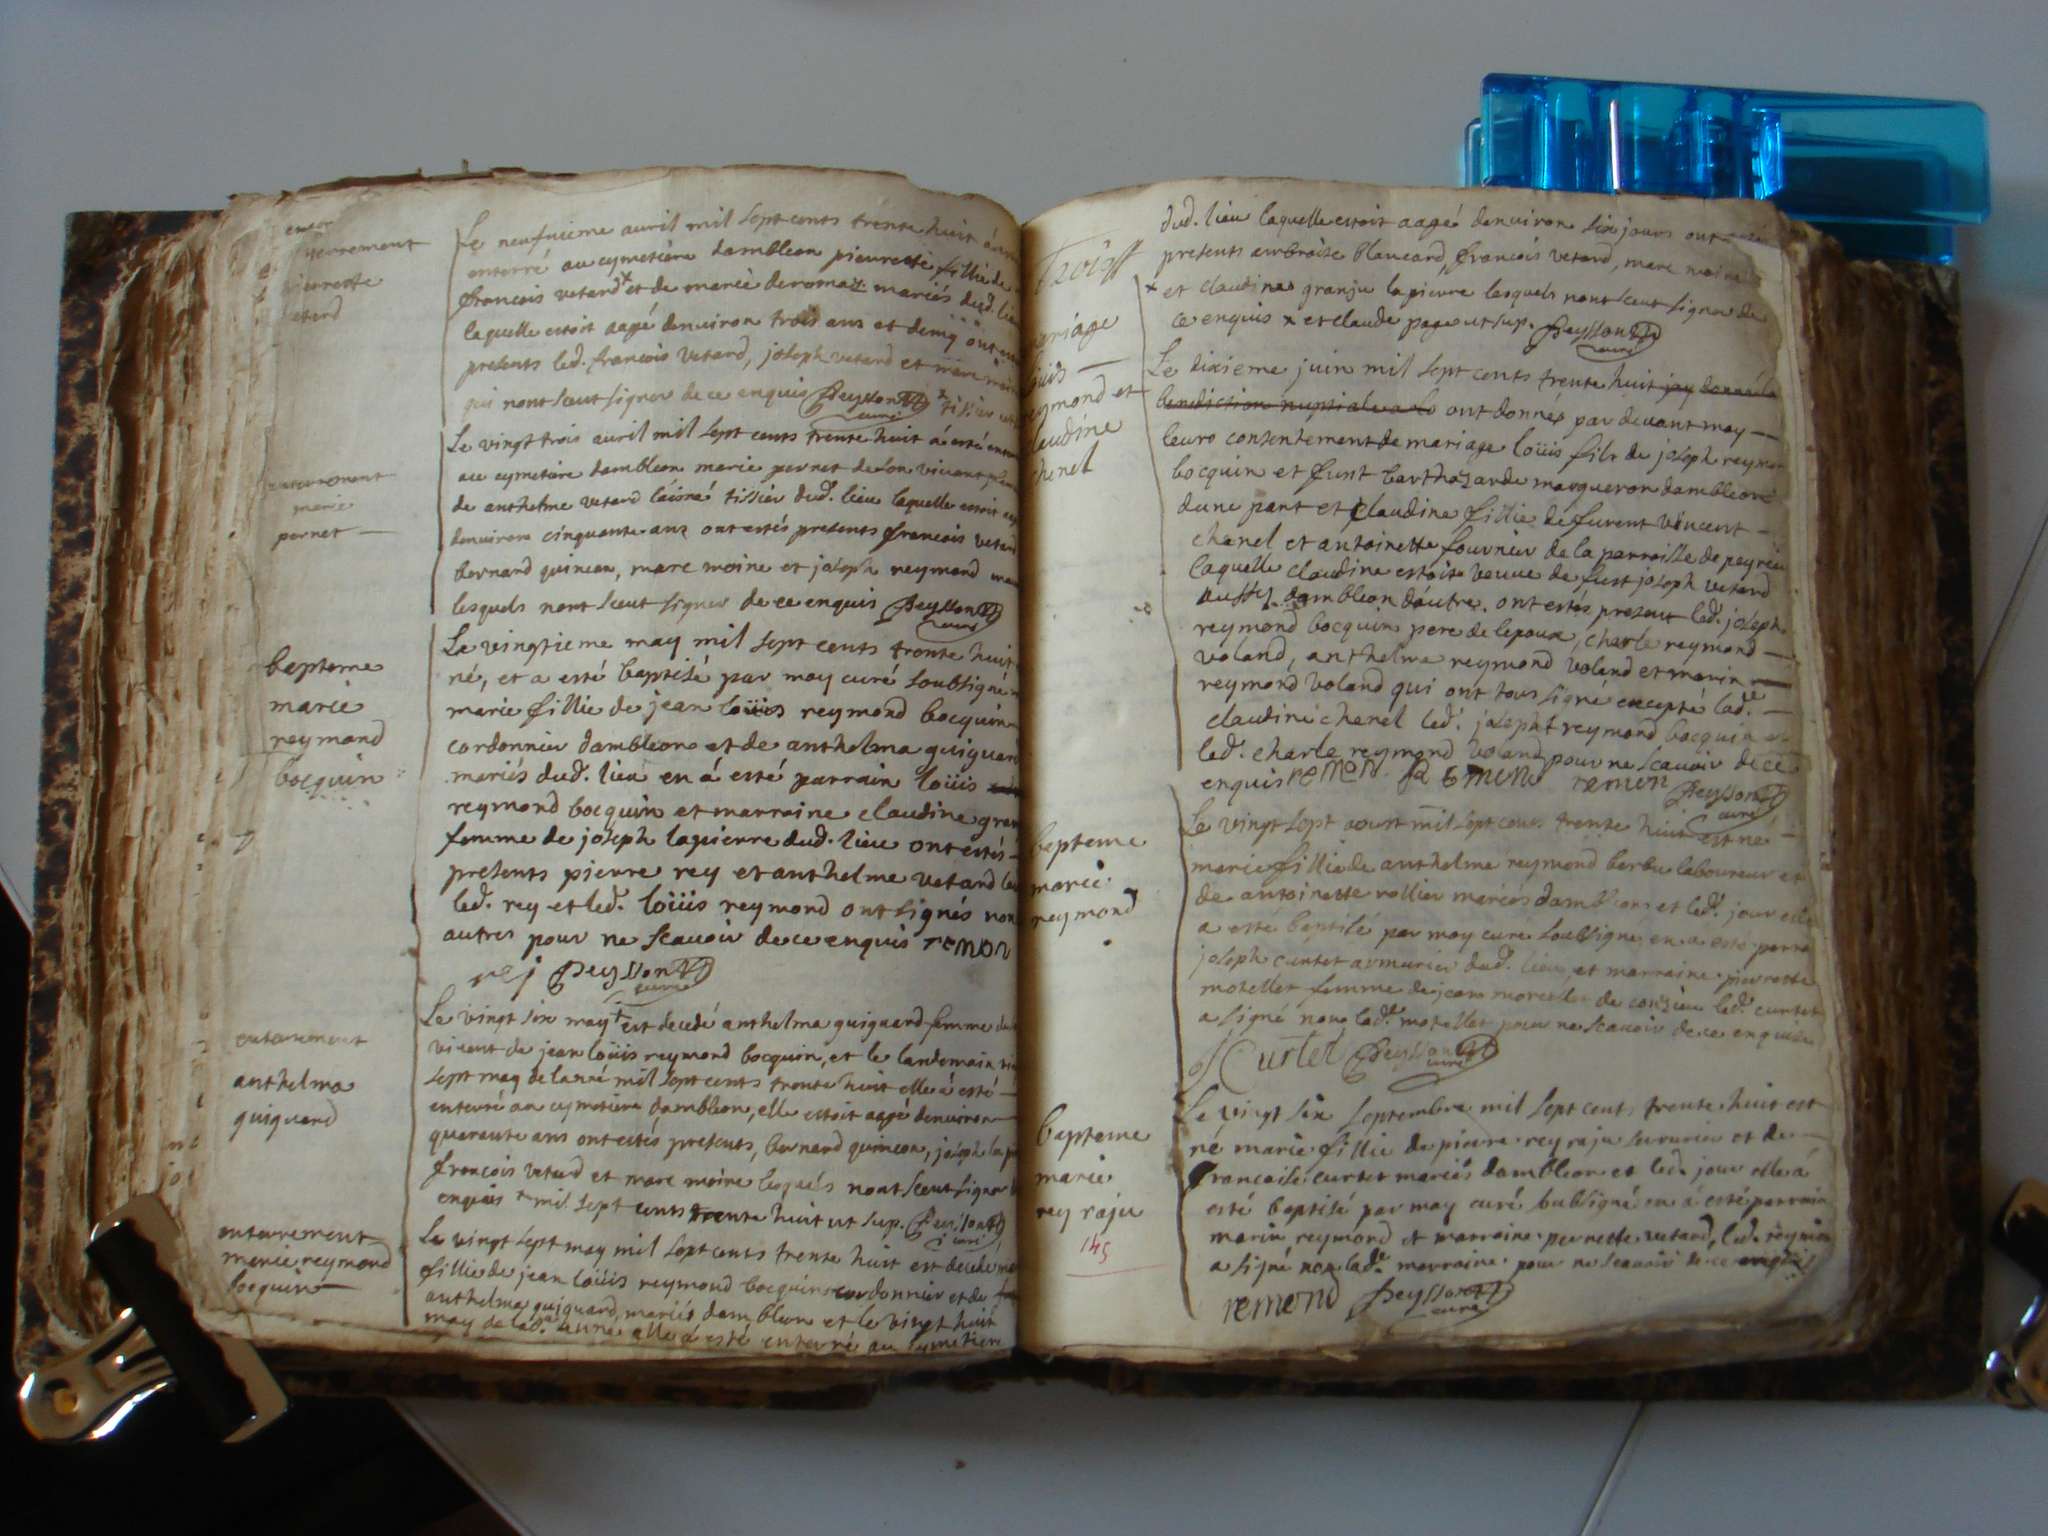 enterrement
pierrette
vetard
Le neufvieme avril mil sept cents trente huit a esté
enterré au cymetiere dambleon pierrette fillie de
francois vetard x et de marie deromaz mariés dud. lieu
laquelle estoit aagé denviron trois ans et demy ont esté
presents led. francois vetard, joseph vetard et marc moine
qui nont sceut signer de ce enquis Peysson curé x tissier
enterrement
marie
pernet
Le vingt trois avril mil sept cents trente huit a esté enterré
au cymetiere dambleon marie pernet de son vivant femme
de anthelme vetard láisné tissier dud. lieu laquelle estoit aagé
denviron cinquante ans ont estés presents francois vetard
bernard quincon, marc moine et joseph reymond
lesquels nont sceut signer de ce enquis Peysson curé
bapteme
marie
reymond
bocquin
Le vingtieme may mil sept cents trente huit
né, et a esté baptisé par moy curé soubsigné
marie fillie de jean loüis reymond bocquin
cordonnier dambleon et de anthelma guiguard
mariés dud. lieu en á esté parrain loüis
reymond bocquin et marraine claudine granju
femme de joseph lapierre dud. lieu ont estés
presents pierre rey et anthelme vetard
led. rey et led. loüis reymond ont signés non
autres pour ne scavoir de ce enquis remon
rey Peysson curé
enterrement
anthelma
guiguard
Le vingt six may + est decedé anthelma guiguard femme du
vivant de jean loüis reymond bocquin, et le landemain vingt
sept may de lanné mil sept cents trente huit elle á esté
enterré au cymetiere dambleon, elle estoit aagé denviron
quarante ans ont estés presents, bernard quincon, joseph lapierre
francois vetard et marc moine lesqués nont sceut signer de
enquis + mil sept cents trente huit ut sup. Peysson curé
enterrement
marie reymond
bocquin
Le vingt sept may mil sept cents trente huit est decedé marie
fillie de jean loüis reymond bocquin cordonnier et de
anthelma guiguard, mariés dambleon et le vingt huit
may de lad. anné elle á esté enterré au cymetiere
dud. lieu laquelle estoit aagé denviron six jours ont estés
presents ambroise blancard, francois vetard, marc moine
x et claudine granju lapierre lesquels nont sceut signer de
ce enquis x et claude page ut sup. Peysson curé
mariage
loüis
reymond et
claudine
chenel
Le dixieme juin mil sept cents trente huit jay donné la
benediction nuptiale a lo ont donnés par devant moy
leurs consentement de mariage loüis fils de joseph reymond
bocquin et funt barthazarde marqueron dambleon
dune part et claudine fillie de furent vincent
chenel et antoinette fournier de la parroisse de peyrieu
laquelle claudine estoit veuve de fust joseph vetard
aussy dambleon dáutre. ont estés present led. joseph
reymond bocquin pere de lepoux, charle reymond
voland, anthelme reymond voland et marin
reymond voland qui ont tous signé excepté lad.e
claudine chenel led. joseph reymond bocquin et
led. charle reymond voland pour ne scavoir de ce
enquis remon. remon remon Peysson curé
bapteme
marie
reymond
Le vingt sept aoust mil sept cens trente huit est né
marie fillie de anthelme reymond berbu laboureur et
de antoinette rollier mariés dambleon et led. jour elle
a esté baptisé par moy curé soubsigné en a esté parrain
joseph curtet armurier dud. lieu, et marraine pierrette
motellet femme de jean morcelet de conzieu led. curtet
a signé non lad.e motellet pour ne scavoir de ce enquise
J Curtet Peysson curé
bapteme
marie
rey raju
145
Le vingt six septembre mil sept cents trente huit est
né marie fillie de pierre rey raju serrurier et de
francoise curtet mariés dambleon et led. jour elle á
esté baptisé par moy curé soubsigné en á esté parrain
marin reymond et marraine pernette vetard, led. reymond
a signé non lad.e marraine pour ne scavoir de ce enquis
remond Peysson curé